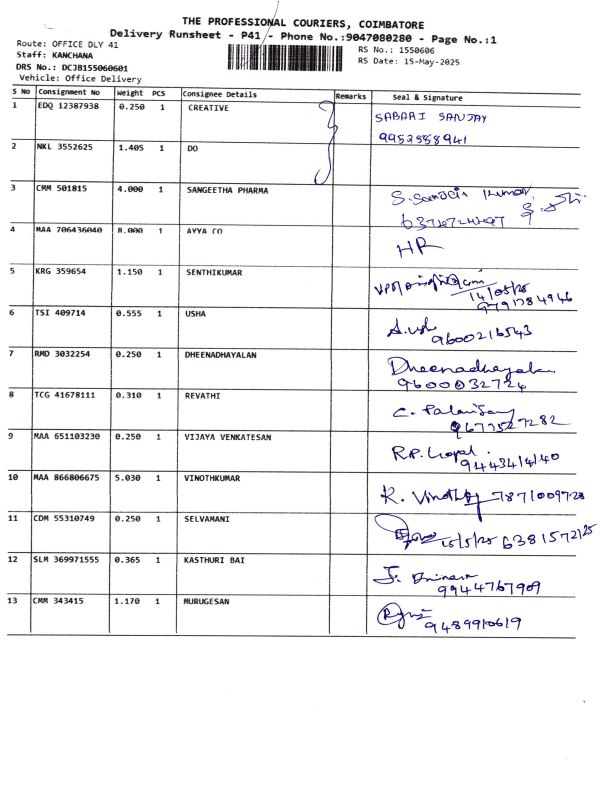 THE PROFESSIONAL COURIERS, COIMBATORE
Delivery Runsheet - P41 - Phone No.:9047080280 - Page No.:1
Route: OFFICE DLY 41
RS No.: 1550606
Staff: KANCHANA
RS Date: 15-May-2025
DRS No.: DCJB155060601
Vehicle: Office Delivery
S No Consignment No Weight PCS Consignee Details Remarks Seal & Signature
1 EDQ 12387938 0.250 1 CREATIVE SABARI SANJAY
9952558941
2 NKL 3552625 1.405 1 DO
3 CMM 501815 4.000 1 SANGEETHA PHARMA
4 MAA 706436040 8.000 1 AYYA CO HR
5 KRG 359654 1.150 1 SENTHIKUMAR
14/05/25
9791784946
6 TSI 409714 0.555 1 USHA
9600216543
7 RMD 3032254 0.250 1 DHEENADHAYALAN Dheenadhayalan
9600032724
8 TCG 41678111 0.310 1 REVATHI
9677527282
9 MAA 651103230 0.250 1 VIJAYA VENKATESAN
10 MAA 866806675 5.030 1 VINOTHKUMAR K. Vinoth
11 CDM 55310749 0.250 1 SELVAMANI 15/5/25
12 SLM 369971555 0.365 1 KASTHURI BAI
9944767909
13 CMM 343415 1.170 1 MURUGESAN
9489910619